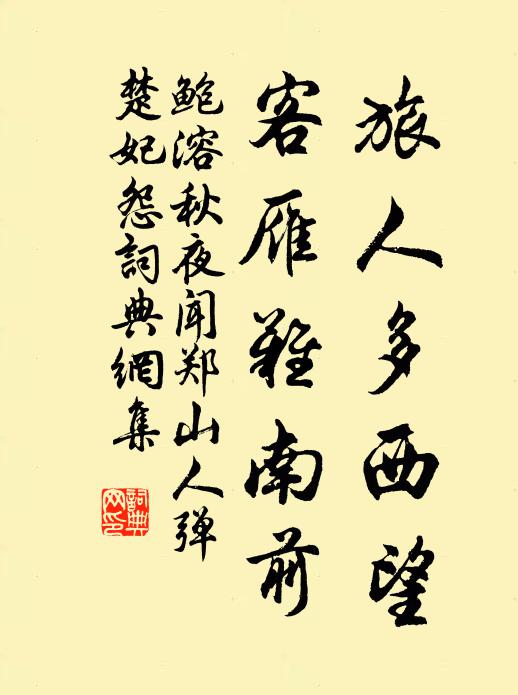 旅人多西望
客雁难南前
鲍溶秋夜闻郑山人弹
楚妃怨詞典網集
詞典网印